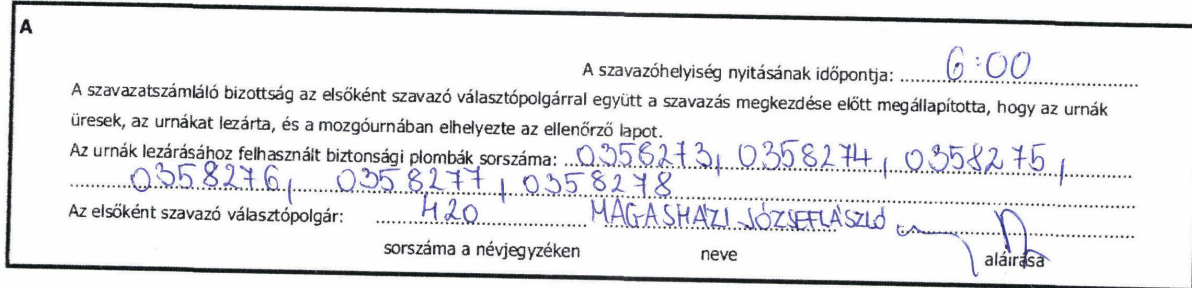 A
A szavazóhelyiség nyitásának időpontja: 6:00
A szavazatszámláló bizottság az elsőként szavazó választópolgárral együtt a szavazás megkezdése előtt megállapította, hogy az urnák
üresek, az urnákat lezárta, és a mozgóurnában elhelyezte az ellenőrző lapot.
Az urnák lezárásához felhasznált biztonsági plombák sorszáma: 0358273, 0358274, 0358275,
0358276, 0358277, 0358278
Az elsőként szavazó választópolgár: 420 MAGASHÁZI JÓZSEF LÁSZLÓ
sorszáma a névjegyzéken neve aláírása